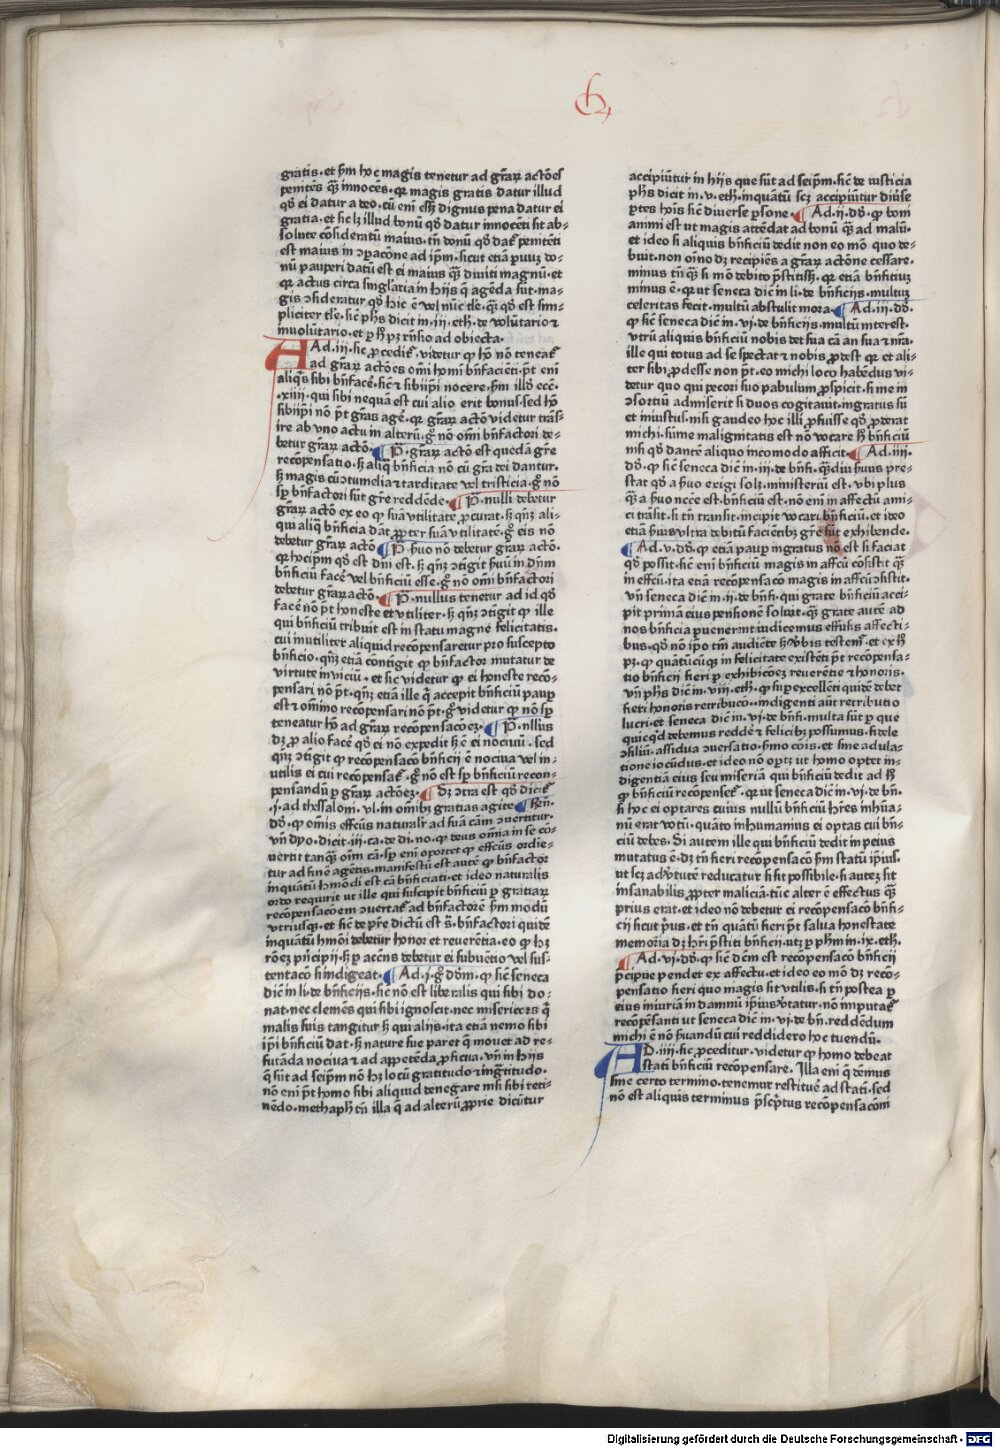 gratis.et ẜm hoc magis tenetur ad gr̄aꝝ actōes
penitēs qȝ innocēs.qꝛ magis gratis datur illud
qḋ ei datur a deo.cū eni esset dignus pena datur ei
gratia.et sic lȝ illud bonū qḋ datur innocēti sit ab-
solute cōsideratū maius.tn̄ donū qḋ dat̄ penitēti
est maius in ↄpacōne ad ip̄m.sicut etiā ꝑuuȝ do-
nū pauperi datū est ei maius qȝ diuiti magnū.et
qꝛ actus circa singl̓aria in hijs q̄ agēda sūt.ma-
gis ↄsideratur qḋ hic ē vel nūc tl̄e.qȝ qḋ est sim-
pliciter tl̄e.sic ph̄s dicit in.iij.eth̄.de volūtario ⁊
inuolūtario.et ꝑ hȝ pȝ rn̄sio ad obiecta.
Ad.iij.sic ꝓcedit̄.videtur ꝙ hō nō teneat̄
ad gr̄aꝝ actōes oīni homi bn̄facieti.pt̄ eni
aliq̄s sibi bn̄facē.sic ⁊ sibiip̄i nocere.ẜm illḋ ecc̄.
.xiiij.qui sibi nequā est cui alio erit bonus.sed hō
sibiip̄i nō pt̄ gr̄as agē.qꝛ gr̄aꝝ actō videtur trās-
ire ab vno actu in alterū.g̊ nō omi bn̄factori de-
betur gr̄aꝝ actō. ¶ P̄.gr̄aꝝ actō est quedā gr̄e
recōpensatio.ẜȝ aliq̄ bn̄ficia nō cū gr̄a dei dantur.
ẜȝ magis cū ↄtumelia ⁊ tarditate vel tristicia.g̊ nō
sp̄ bn̄factori sūt gr̄e reddēde. ¶ P̄.nulli debetur
gr̄aꝝ actō ex eo ꝙ suā vtilitatē ꝓcurat.ẜȝ qn̄ȝ ali-
qui aliq̄ bn̄ficia dāt ꝓpter suā vtilitatē.g̊ eis nō
debetur gr̄aꝝ actō ¶ P̄.ẜuo nō debetur gr̄aꝝ actō.
qꝛ hocip̄m qḋ est dn̄i est.ẜȝ qn̄ȝ ↄtigit ẜuū in dn̄m
bn̄ficiū facē vel bn̄ficiū esse.g̊ nō omi bn̄factori
debetur gr̄aꝝ actō. ¶ P̄.nullus tenetur ad id qḋ
facē nō pt̄ honeste et vtiliter.ẜȝ qn̄ȝ ↄtigit ꝙ ille
qui bn̄ficiū tribuit est in statu magne felicitatis.
cui inutiliter aliquid recōpensaretur pro suscepto
bn̄ficio.qn̄ȝ etiā contigit ꝙ bn̄factor mutatur de
virtute in viciū.et sic videtur ꝙ ei honeste recō-
pensari nō pt̄.qn̄ȝ etiā ille q̄ accepit bn̄ficiū paup
est ⁊ omīno recōpensari nō pt̄.g̊ videtur ꝙ nō sp̄
teneatur hō ad gr̄aꝝ recōpensacōeȝ. ¶ P̄.nll̓us
dȝ ꝓ alio facē qḋ ei nō expedit ẜȝ ē ei nociuū.sed
qn̄ȝ ↄtigit ꝙ recōpensacō bn̄ficij ē nociua vel in-
utilis ei cui recōpensat̄.g̊ nō est sp̄ bn̄ficiū recon-
pensandū ꝑ gr̄aꝝ actōeȝ. ¶ Sȝ ↄtra est qḋ dicit̄
.j.ad thessaloni.vl.in omībȝ gratias agite ¶ Rn̄.
dō.ꝙ omīs effc̄us naturalr̄ ad suā cām ↄuertitur.
vn̄ dyo.dicit.iij.ca.de di.no.ꝙ deus omīa in se cō-
uertit tanq̄ȝ oīm cā.sp̄ eni oportet ꝙ effc̄us ordie-
tur ad finē agētis.manifestū est autē ꝙ bn̄factor
inquātū hmōdi est cā bn̄ficiati.et ideo naturalis
ordo requirit vt ille qui suscipit bn̄ficiū ꝑ gratiaꝝ
recōpensacōem ↄuertat̄ ad bn̄factorē ẜm modū
vtriusqȝ.et sic de p̄re dictū est s̄.bn̄factori quidē
inquātū hmōi debetur honor et reuerētia.eo ꝙ hȝ
rōeȝ pn̄cipij.ẜȝ ꝑ accn̄s debetur ei subuētio vel sus-
tentacō si indigeat. ¶ Ad.j.g̊ dōm.ꝙ sic seneca
dic̄ in li.de bn̄ficijs.sic nō est liberalis qui sibi do-
nat.nec clemēs qui sibi ignoscit.nec misericors q̄
malis suis tangitur ẜȝ qui alijs.ita etiā nemo sibi
ip̄i bn̄ficiū dat.ẜȝ nature sue paret q̄ mouet ad re-
futāda nociua ⁊ ad appetēda ꝓficua.vn̄ in hijs
q̄ sūt ad seip̄m nō hȝ locū gratitudo ⁊ ingr̄titudo.
nō eni pt̄ homo sibi aliquid denegare nisi sibi reti-
nēdo.methaph̄ tn̄ illa q̄ ad alterū ꝓprie dicūtur
accipiūtur in hijs que sūt ad seip̄m.sic de iusticia
ph̄s dicit in.v.eth̄.inquātū scȝ accipiūtur diūse
ꝑtes hōis sic diuerse ꝑsone. ¶ Ad.ij.dō.ꝙ boni
animi est vt magis attēdat ad bonū qȝ ad malū.
et ideo si aliquis bn̄ficiū dedit non eo mō quo de-
buit.non oīno dȝ recipiēs a gr̄aꝝ actōne cessare.
minus tn̄ qȝ si mō debito p̄stitisȝ.qꝛ etiā bn̄fitiuȝ
minus ē.qꝛ ut seneca dic̄ in li.de bn̄ficijs.multuȝ
celeritas fecit.multū abstulit mora. ¶ Ad.iij.dō.
ꝙ sic seneca dic̄ in.vj.de bn̄ficijs.multū interest.
vtrū aliquis bn̄ficiū nobis det sua cā an sua ⁊ nr̄a.
ille qui totus ad se spectat ⁊ nobis ꝓdest qꝛ et ali-
ter sibi ꝓdesse non pt̄.eo michi loco habēdus vi-
detur quo qui pecori suo pabulum ꝓspicit.si me in
ↄsortiū admiserit si duos cogitauit.ingratus sū
et iniustus.nisi gaudeo hoc illi ꝓfuisse qḋ ꝓderat
michi.sūme malignitatis est nō vocare ẜȝ bn̄ficiū
nisi qḋ dantē aliquo incomodo afficit. ¶ Ad.iiij.
dō.ꝙ sic seneca dic̄ in.iij.de bn̄fi.qȝdiu ẜuus pre-
stat qḋ a ẜuo exigi solȝ.ministeriū est.vbi plus
qȝ a ẜuo ncc̄e est.bn̄ficiū est.nō eni in affectū ami-
ci trāsit.si tn̄ transit.incipit vocari bn̄ficiū.et ideo
etiā ẜuis vltra debitū faciētibȝ gr̄e sūt exhibende.
¶ Ad.v.dō.ꝙ etiā paup ingratus nō est si faciat
qḋ possit.sic eni bn̄ficiū magis in affc̄u cōsistit qȝ
in effc̄u.ita etiā recōpensacō magis in affc̄u ↄsistit.
vn̄ seneca dic̄ in.ij.de bn̄fi.qui grate bn̄ficiū acci-
pit primā eius pensionē soluit.qȝ grate autē ad
nos bn̄ficia ꝑuenerint iudicemus effusis affecti-
bus.qḋ nō ip̄o tm̄ audiēte ẜȝ vbis testem̄.et ex ẜȝ
pȝ.ꝙ quātūcūqȝ in felicitate existēti pt̄ recōpensa-
tio bn̄ficij fieri ꝑ exhibicōeȝ reuerētie ⁊ honoris.
vn̄ ph̄s dic̄ in.viij.eth̄.ꝙ suꝑexcellēti quidē debet
fieri honoris retribucō..indigenti aūt retributio
lucri.et seneca dic̄ in.vj.de bn̄fi.multa sūt ꝑ que
quicq̄d debemus reddē ⁊ felicibȝ possumus.fidele
ↄsiliū.assidua ↄuersatio.ẜmo cōis.et sine adula-
tione iocūdus.et ideo nō oportȝ vt homo optet in-
digentiā eius seu miseriā qui bn̄ficiū dedit ad ẜȝ
ꝙ bn̄ficiū recōpenset̄.qꝛ ut seneca dic̄ in.vj.de bn̄.
si hoc ei optares cuius nullū bn̄ficiū hr̄es inhūa-
nū erat votū.quāto inhumanius ei optas cui bn̄-
ciū debes. Si autem ille qui bn̄ficiū dedit in peius
mutatus ē.dȝ tn̄ fieri recōpensacō ẜm statū ip̄ius.
ut scȝ ad v̓tutē reducatur si sit possibile.si autēȝ sit
insanabilis ꝓpter maliciā.tūc alter ē effectus qȝ
prius erat.et ideo nō debetur ei recōpensacō bn̄fi-
cij sicut p̄us.et tn̄ quātū fieri pt̄ salua honestate
memoria dȝ hr̄i p̄stiti bn̄ficij.utȝ ꝑ ph̄m in.ix.eth̄.
¶ Ad.vj.dō.ꝙ sic dc̄m est recōpensacō bn̄ficij
p̄cipue pendet ex affectu.et ideo eo mō dȝ recō-
pensatio fieri quo magis sit vtilis.si tn̄ postea ꝑ
eius iniuriā in damnū ip̄ius v̓tatur.nō imputat̄
recōpēsanti ut seneca dic̄ in.vj.de bn̄.reddēdum
michi ē nō ẜuandū cui reddidero hoc tuendū.
AD.iiij.sic ꝓceditur.videtur ꝙ homo debeat
stati bn̄ficiū recōpensare. Illa eni q̄ dēmus
sine certo termino.tenemur restituē ad stati.sed
nō est aliquis terminus p̄scp̄tus recōpensacōni
Digitalisierung gefördert durch die Deutsche Forschungsgemeinschaft - DFG